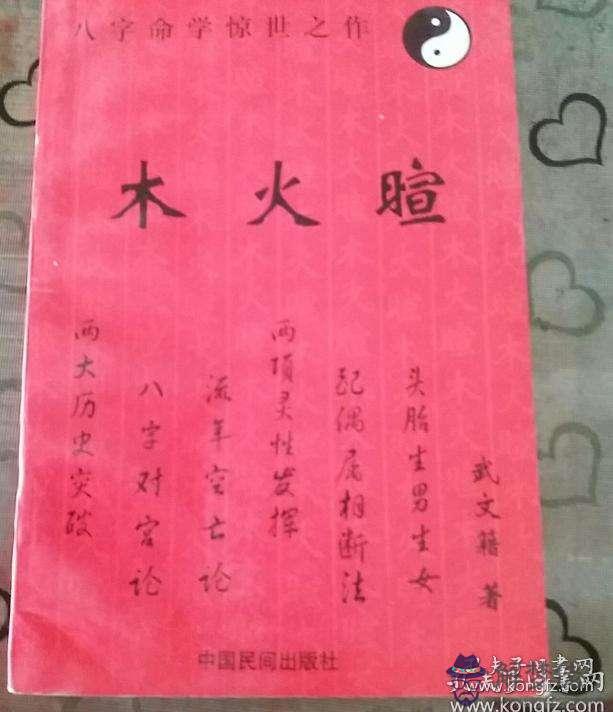 八字命学惊世之作
木火暄
两大历史突破
八字对宫论
流年空亡论
两项灵性发挥
配偶属相断法
头胎生男生女
武文籍 著
中国民间出版社
夫子旧书网
www.kongfz.com